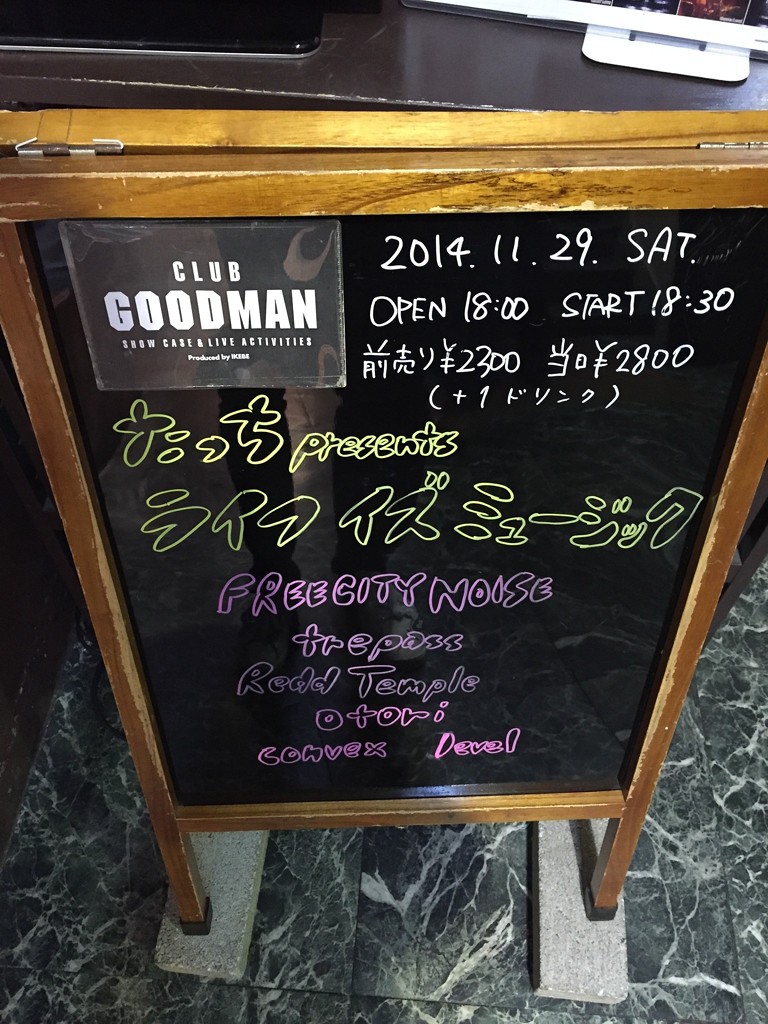 CLUB
GOODMAN
SHOW CASE & LIVE ACTIVITIES
Produced by IKEBE
2014. 11. 29. SAT.
OPEN 18:00 START 18:30
前売り¥2300 当日¥2800
(+1ドリンク)
たっち presents
ライフ イズ ミュージック
FREE CITY NOISE
trepass
Redd Temple
otori
convex Level